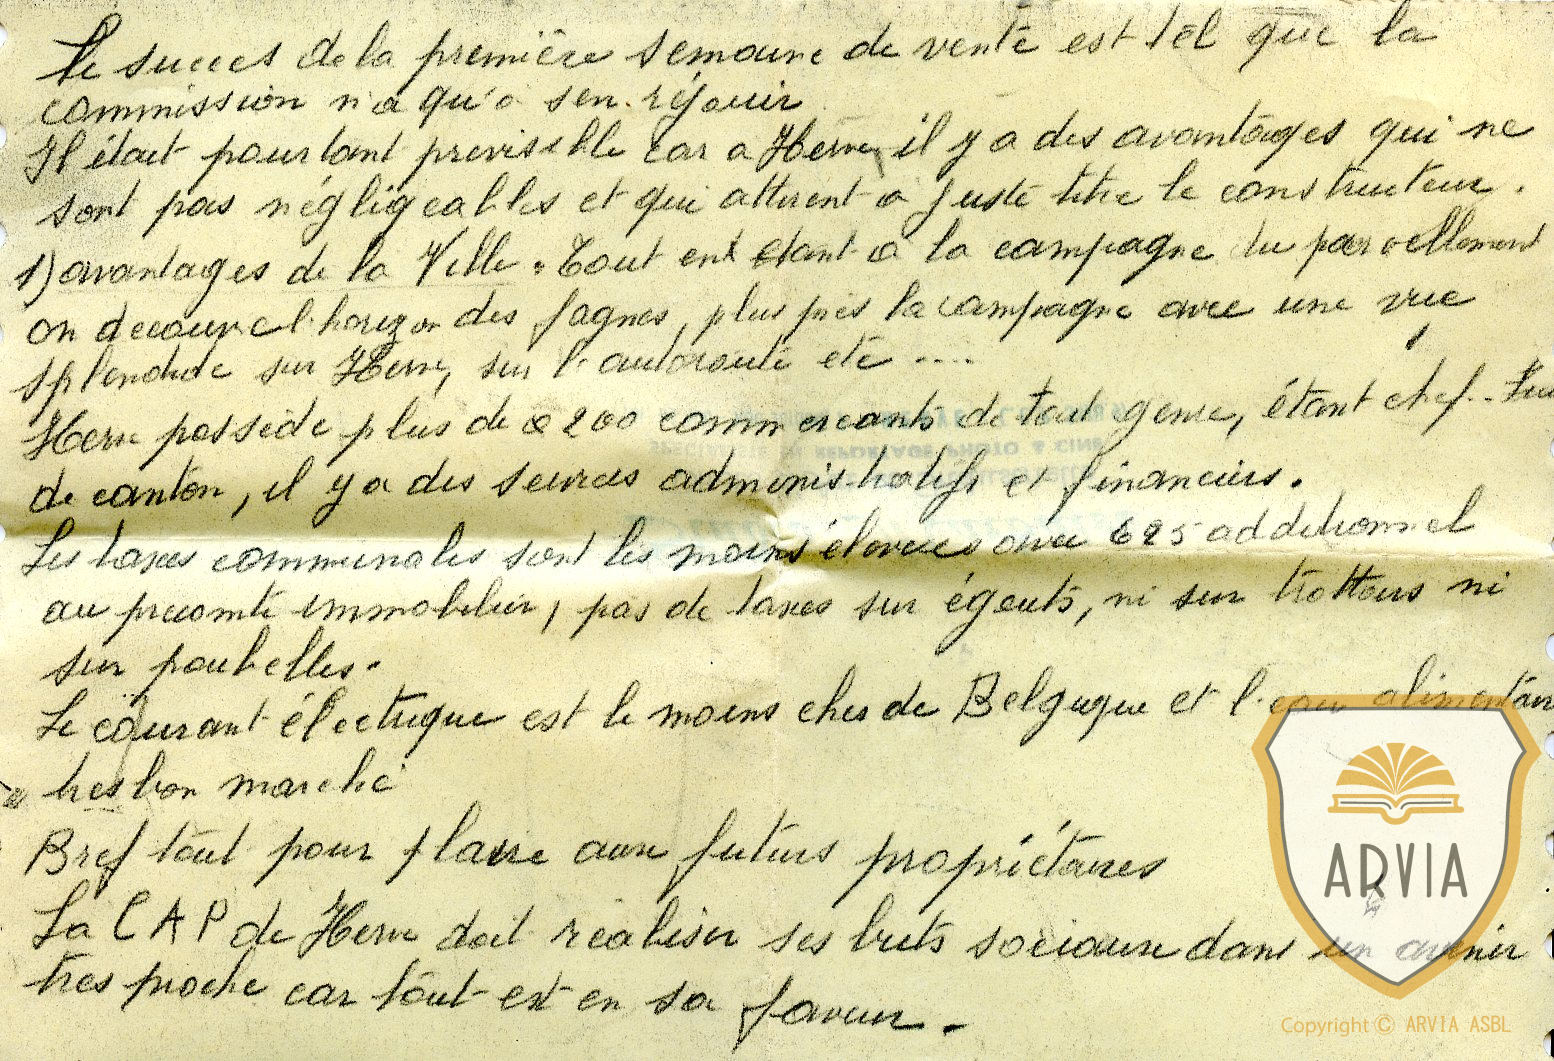 Le succes de la première semaine de vente est tel que la
commission n'a qu'a s'en rejouir
Il était pourtant previsible car a Herve il y a des avantages qui ne
sont pas négligeables et qui attirent a juste titre le constructeur.
1) avantages de la Ville. Tout en étant a la campagne du
on decouvre l'horizon des fagnes, plus près la campagne avec une vue
splendide sur Herve, sur l'autoroute etc ....
Herve possède plus de 200 commercants de tout genre, étant chef..
de canton, il y a des services administratifs et financiers.
Les taxes communales sont les moins élevées avec 625 additionnel
au precomte immobilier, pas de taxes sur égouts, ni sur trottoirs ni
sur poubelles.
Le courant électrique est le moins cher de Belgique et l'eau alimentaire
tres bon marché
Bref tout pour plaire aux futurs propriétaires
La CAP de Herve doit réaliser ses buts sociaux dans un avenir
tres proche car tout est en sa faveur.
ARVIA
Copyright © ARVIA ASBL